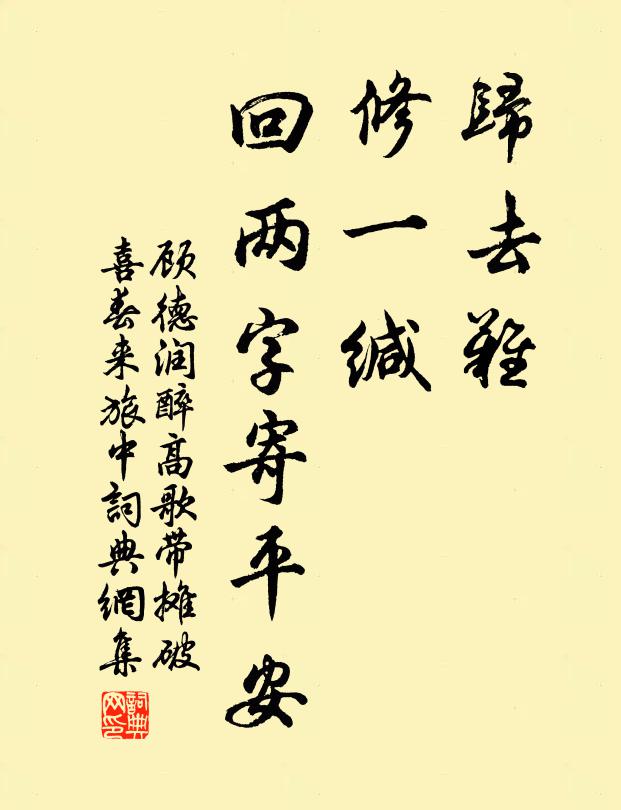 歸去難
修一緘
回两字寄平安
顾德润醉高歌带摊破
喜春来旅中詞典網集
詞典网印